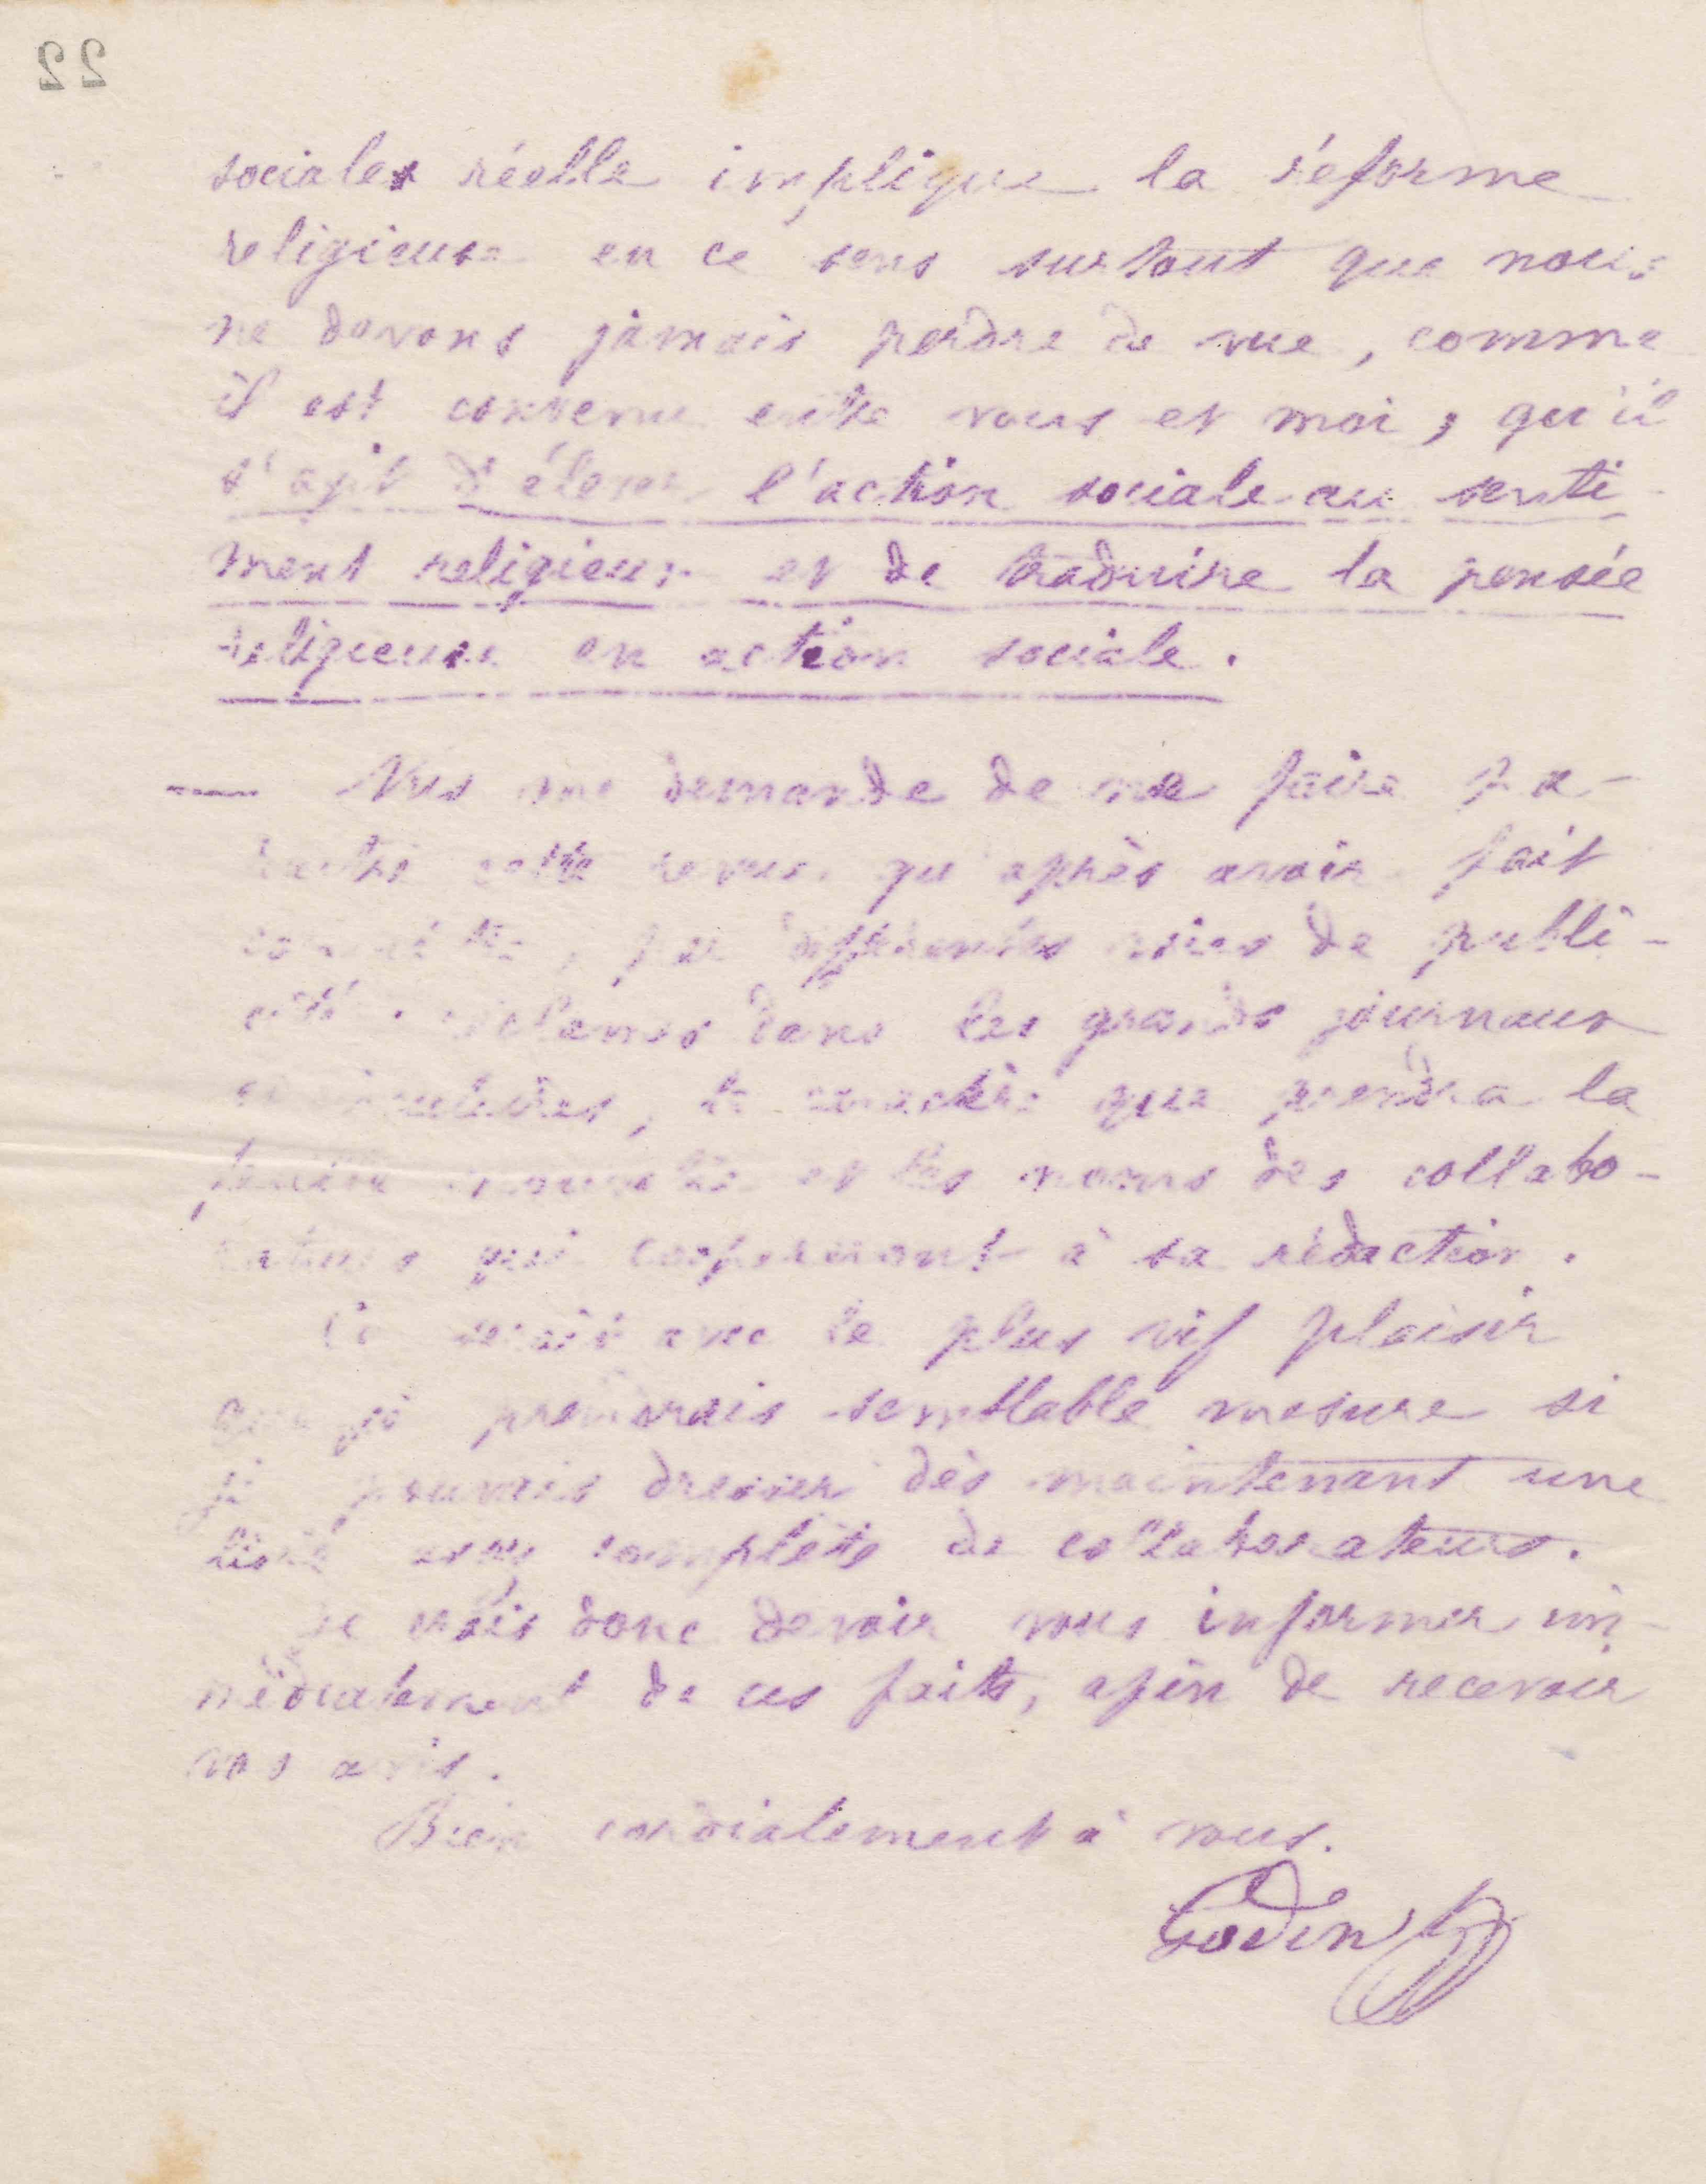 22
sociales réelle implique la réforme
religieuse en ce sens surtout que nous
ne devons jamais perdre de vue, comme
il est convenu entre vous et moi, qu'il
s'agit d'élever l'action sociale au senti-
ment religieux et de traduire la pensée
religieuse en action sociale.
— me demande de ne faire pa-
raître cette revue qu'après avoir fait
connaître, par différentes voies de publi-
cité : réclames dans les grands journaux
circulaires, le caractère que prendra la
feuille nouvelle et les noms des collabo-
rateurs qui coopéreront à sa rédaction.
Ce serait avec le plus vif plaisir
que je prendrais semblable mesure si
je pouvais dresser dès maintenant une
liste assez complète de collaborateurs.
Je crois donc devoir vous informer im-
médiatement de ces faits, afin de recevoir
vos avis.
Bien cordialement à vous.
Godin